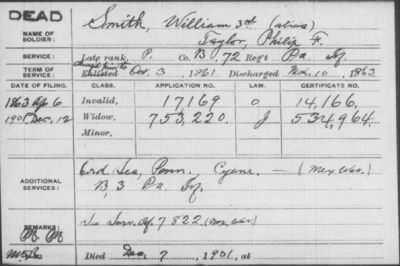 DEAD
NAME OF SOLDIER: Smith, William 3rd (alias)
Taylor, Philip F.
SERVICE: Late rank, P. Co. B, 72 Reg't Pa. Inf.
TERM OF SERVICE: Enlisted Oct. 3, 1861 Discharged Feb. 10, 1863
DATE OF FILING. CLASS. APPLICATION NO. LAW. CERTIFICATE NO.
1863 Ap 6 Invalid. 17169 O 14,166.
1901 Dec, 12 Widow. 753,220. J 534,964.
Minor.
ADDITIONAL SERVICES: Ord. Sea, Penn., Cyane. — (Mex War.)
B, 3 Pa. If.
REMARKS: In Surv. Cf. 7822 (Mex. War)
Died Dec. 7, 1901, at